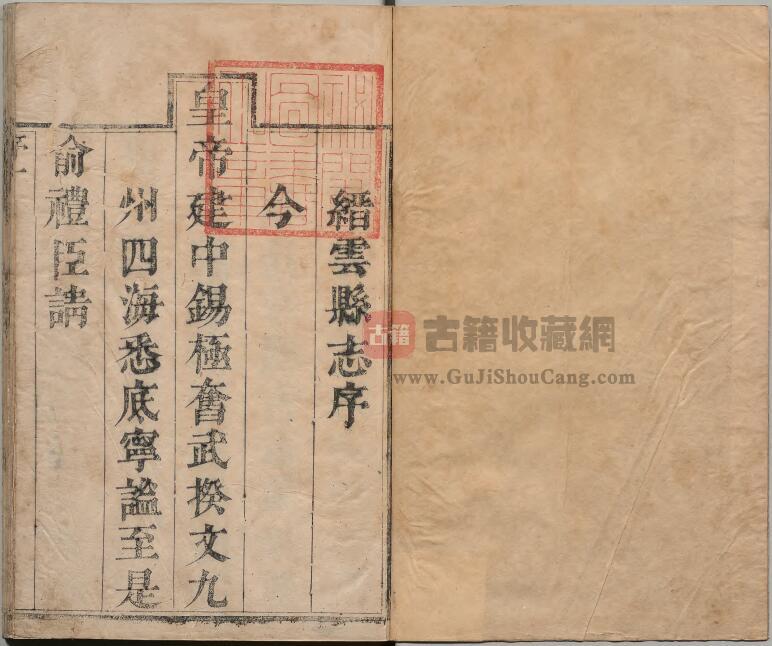 縉雲縣志序
今
皇帝建中錫極奮武揆文九
州四海悉底寧謐至是
俞禮臣請
古籍 古籍收藏網
www.GuJiShouCang.com